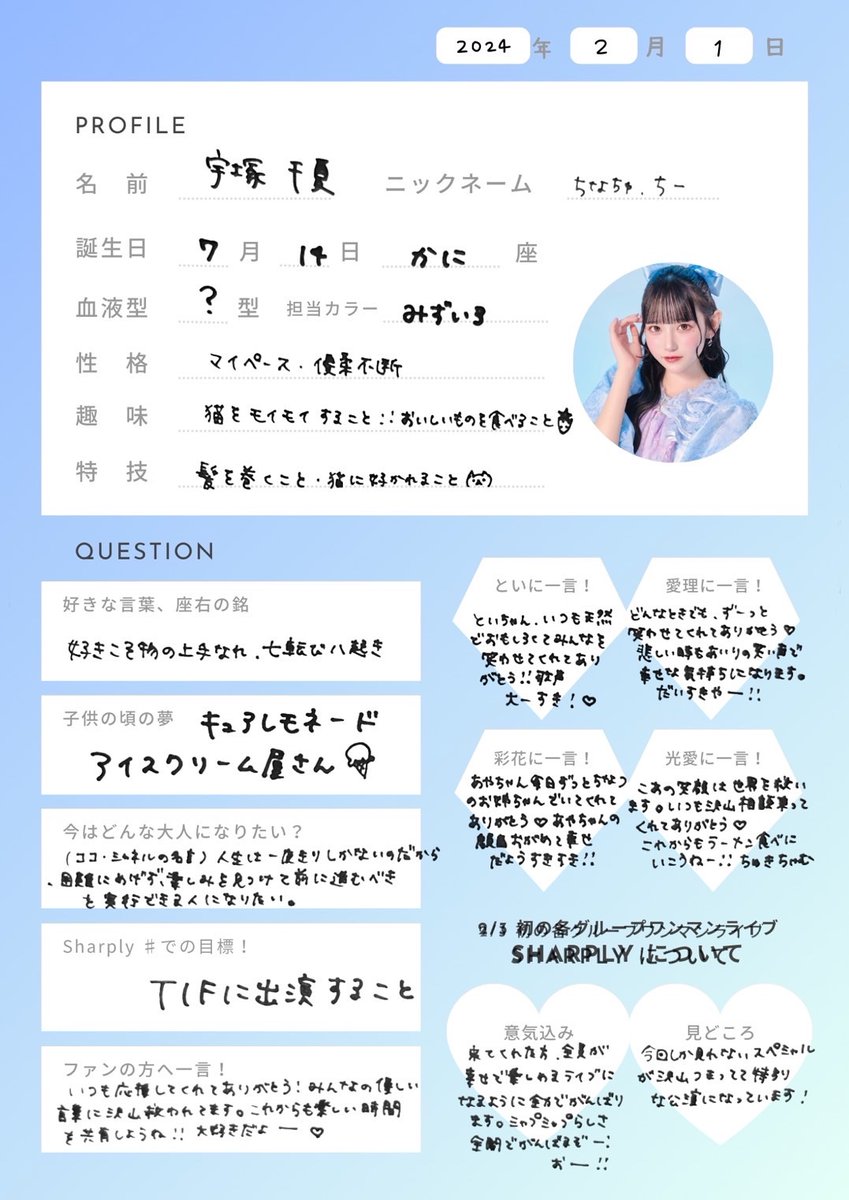 2024 年 2 月 1 日
PROFILE
名 前 宇塚 千夏 ニックネーム ちなちゃ、ちー
誕生日 7 月 14 日 かに 座
血液型 ? 型 担当カラー みずいろ
性 格 マイペース・優柔不断
趣 味 猫をモイモイすること!!おいしいものを食べること
特 技 髪を巻くこと・猫に好かれること
QUESTION
好きな言葉、座右の銘
好きこそ物の上手なれ、七転び八起き
子供の頃の夢 キュアレモネード
アイスクリーム屋さん
今はどんな大人になりたい?
(ココ・シャネルの名言) 人生は一度きりしかないのだから
、困難にめげず、楽しみを見つけて前に進むべき
を実行できる人になりたい。
Sharply #での目標!
TIFに出演すること
ファンの方へ一言!
いつも応援してくれてありがとう!みんなの優しい
言葉に沢山救われてます。これからも楽しい時間
を共有しようね!!大好きだよー♡
といに一言!
といちゃん、いつも天然
でおもしろくてみんなを
笑わせてくれてあり
がとう!!歌声
大ーすき!♡
愛理に一言!
どんなときでも、ずーっと
笑わせてくれてありがとう♡
悲しい時もあいりの笑い声で
幸せな気持ちになります。
だいすきやー!!
彩花に一言!
あやちゃん毎日ずっとちなつ
のお姉ちゃんでいてくれて
ありがとう♡あやちゃんの
顔面おがめて幸せ
だようすきすき!!
光愛に一言!
こあの笑顔は世界を救い
ます。いつも沢山相談乗って
くれてありがとう♡
これからもラーメン食べに
いこうねー!!ちゅきちゃむ
2/3 初の各グループワンマンライブ
SHARPLY について
意気込み
来てくれた方、全員が
幸せで楽しめるライブに
なるように全力でがんばり
ます。ミャプミャプらしさ
全開でがんばるぞー!
おー!!
見どころ
今回しか見れないスペシャル
が沢山つまってて特別
な公演になっています!